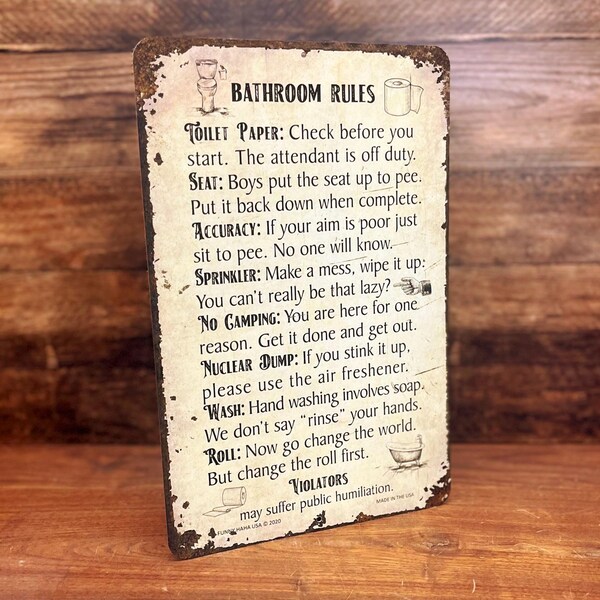 BATHROOM RULES
TOILET PAPER: Check before you
start. The attendant is off duty.
SEAT: Boys put the seat up to pee.
Put it back down when complete.
ACCURACY: If your aim is poor just
sit to pee. No one will know.
SPRINKLER: Make a mess, wipe it up.
You can't really be that lazy?
NO CAMPING: You are here for one
reason. Get it done and get out.
NUCLEAR DUMP: If you stink it up,
please use the air freshener.
WASH: Hand washing involves soap.
We don't say "rinse" your hands.
ROLL: Now go change the world.
But change the roll first.
VIOLATORS
may suffer public humiliation.
MADE IN THE USA
FUNNY HAHA USA © 2020